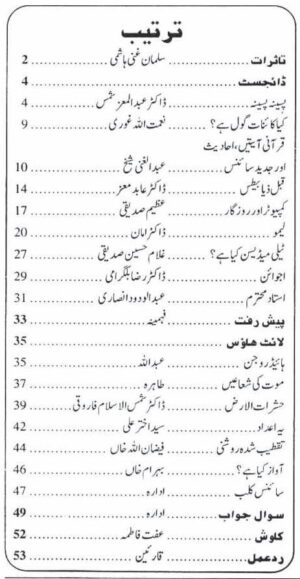 ترتیب
تاثرات ............ سلمان غنی ہاشمی ............ 2
ڈائجسٹ ............ 4
پسینہ پسینہ ............ ڈاکٹر عبدالمعز شمس ............ 4
کیا کائنات گول ہے؟ ............ نعمت اللہ غوری ............ 9
قرآنی آیتیں، احادیث
اور جدید سائنس ............ عبدالغنی شیخ ............ 10
قبل ذیابیطس ............ ڈاکٹر عابد معز ............ 14
کمپیوٹر اور روزگار ............ عظیم صدیقی ............ 17
لیمو ............ ڈاکٹر امان ............ 20
ٹیلی میڈیسن کیا ہے؟ ............ غلام حسین صدیقی ............ 27
اجوائن ............ ڈاکٹر رضا بلگرامی ............ 29
استاد محترم ............ عبدالودود انصاری ............ 31
پیش رفت ............ فہمینہ ............ 33
لائٹ ھاؤس ............ 35
ہائیڈروجن ............ عبداللہ ............ 35
موت کی شعاعیں ............ طاہرہ ............ 37
حشرات الارض ............ ڈاکٹر شمس الاسلام فاروقی ............ 39
یہ اعداد ............ سید اختر علی ............ 42
تقطیب شدہ روشنی ............ فیضان اللہ خاں ............ 44
آواز کیا ہے؟ ............ بہرام خاں ............ 46
سائنس کلب ............ ادارہ ............ 47
سوال جواب ............ ادارہ ............ 49
کاوش ............ عفت فاطمہ ............ 52
ردعمل ............ قارئین ............ 53